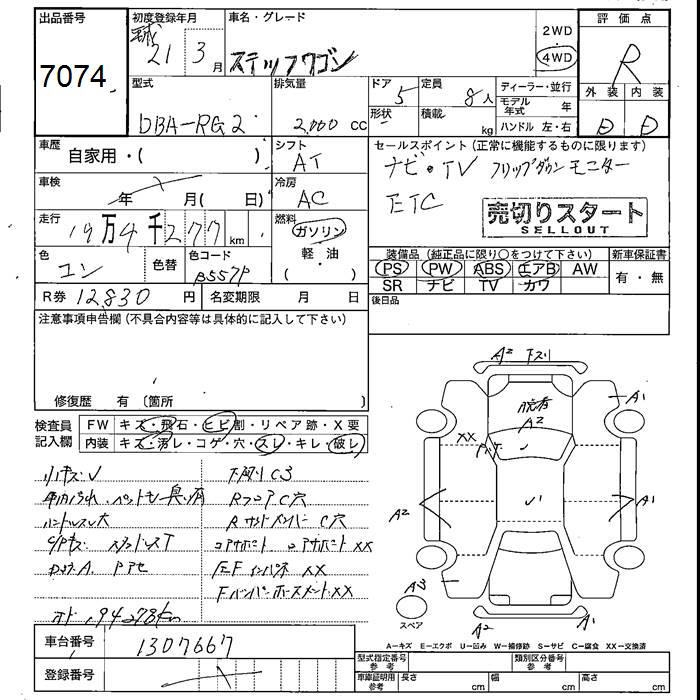 出品番号
7074
初度登録年月
21 3月
車名・グレード
ステップワゴン
2WD
4WD
評価点
R
外装 内装
D D
型式
DBA-RG2
排気量
2,000 cc
ドア 5
形状
定員 8人
積載 kg
ディーラー・並行
モデル年式 年
ハンドル 左・右
車歴
自家用・( )
シフト
AT
セールスポイント(正常に機能するものに限ります)
ナビ・TV フリップダウンモニター
ETC
売切りスタート
SELLOUT
車検
年 月( 日)
冷房
AC
走行
19万4千277km
燃料
ガソリン
軽・油
( )
色
コン
色替
色コード
B557P
装備品(純正品に限り○をつけて下さい)
PS PW ABS エアB AW
SR ナビ TV カワ
新車保証書
有・無
R券 12830円
名変期限 月 日
後日品
注意事項申告欄(不具合内容等は具体的に記入して下さい)
修復歴 有〔箇所
検査員記入欄
FW キズ・飛石・ヒビ割・リペア跡・X要
内装 キズ・汚レ・コゲ・穴・スレ・キレ・破レ
下廻りC3
RフロアC穴
Rサイドメンバー C穴
コアサポート XX
ハンドルスレ大
XX
A2 下スリ
A1
A2
XX
A2
A1
A3
スペア
A2
A1
A-キズ E-エクボ U-凹み W-補修跡 S-サビ C-腐食 XX-交換済
車台番号
1307667
登録番号
型式指定番号 参考
類別区分番号 参考
車庫証明用 参考
長さ cm
幅 cm
高さ cm